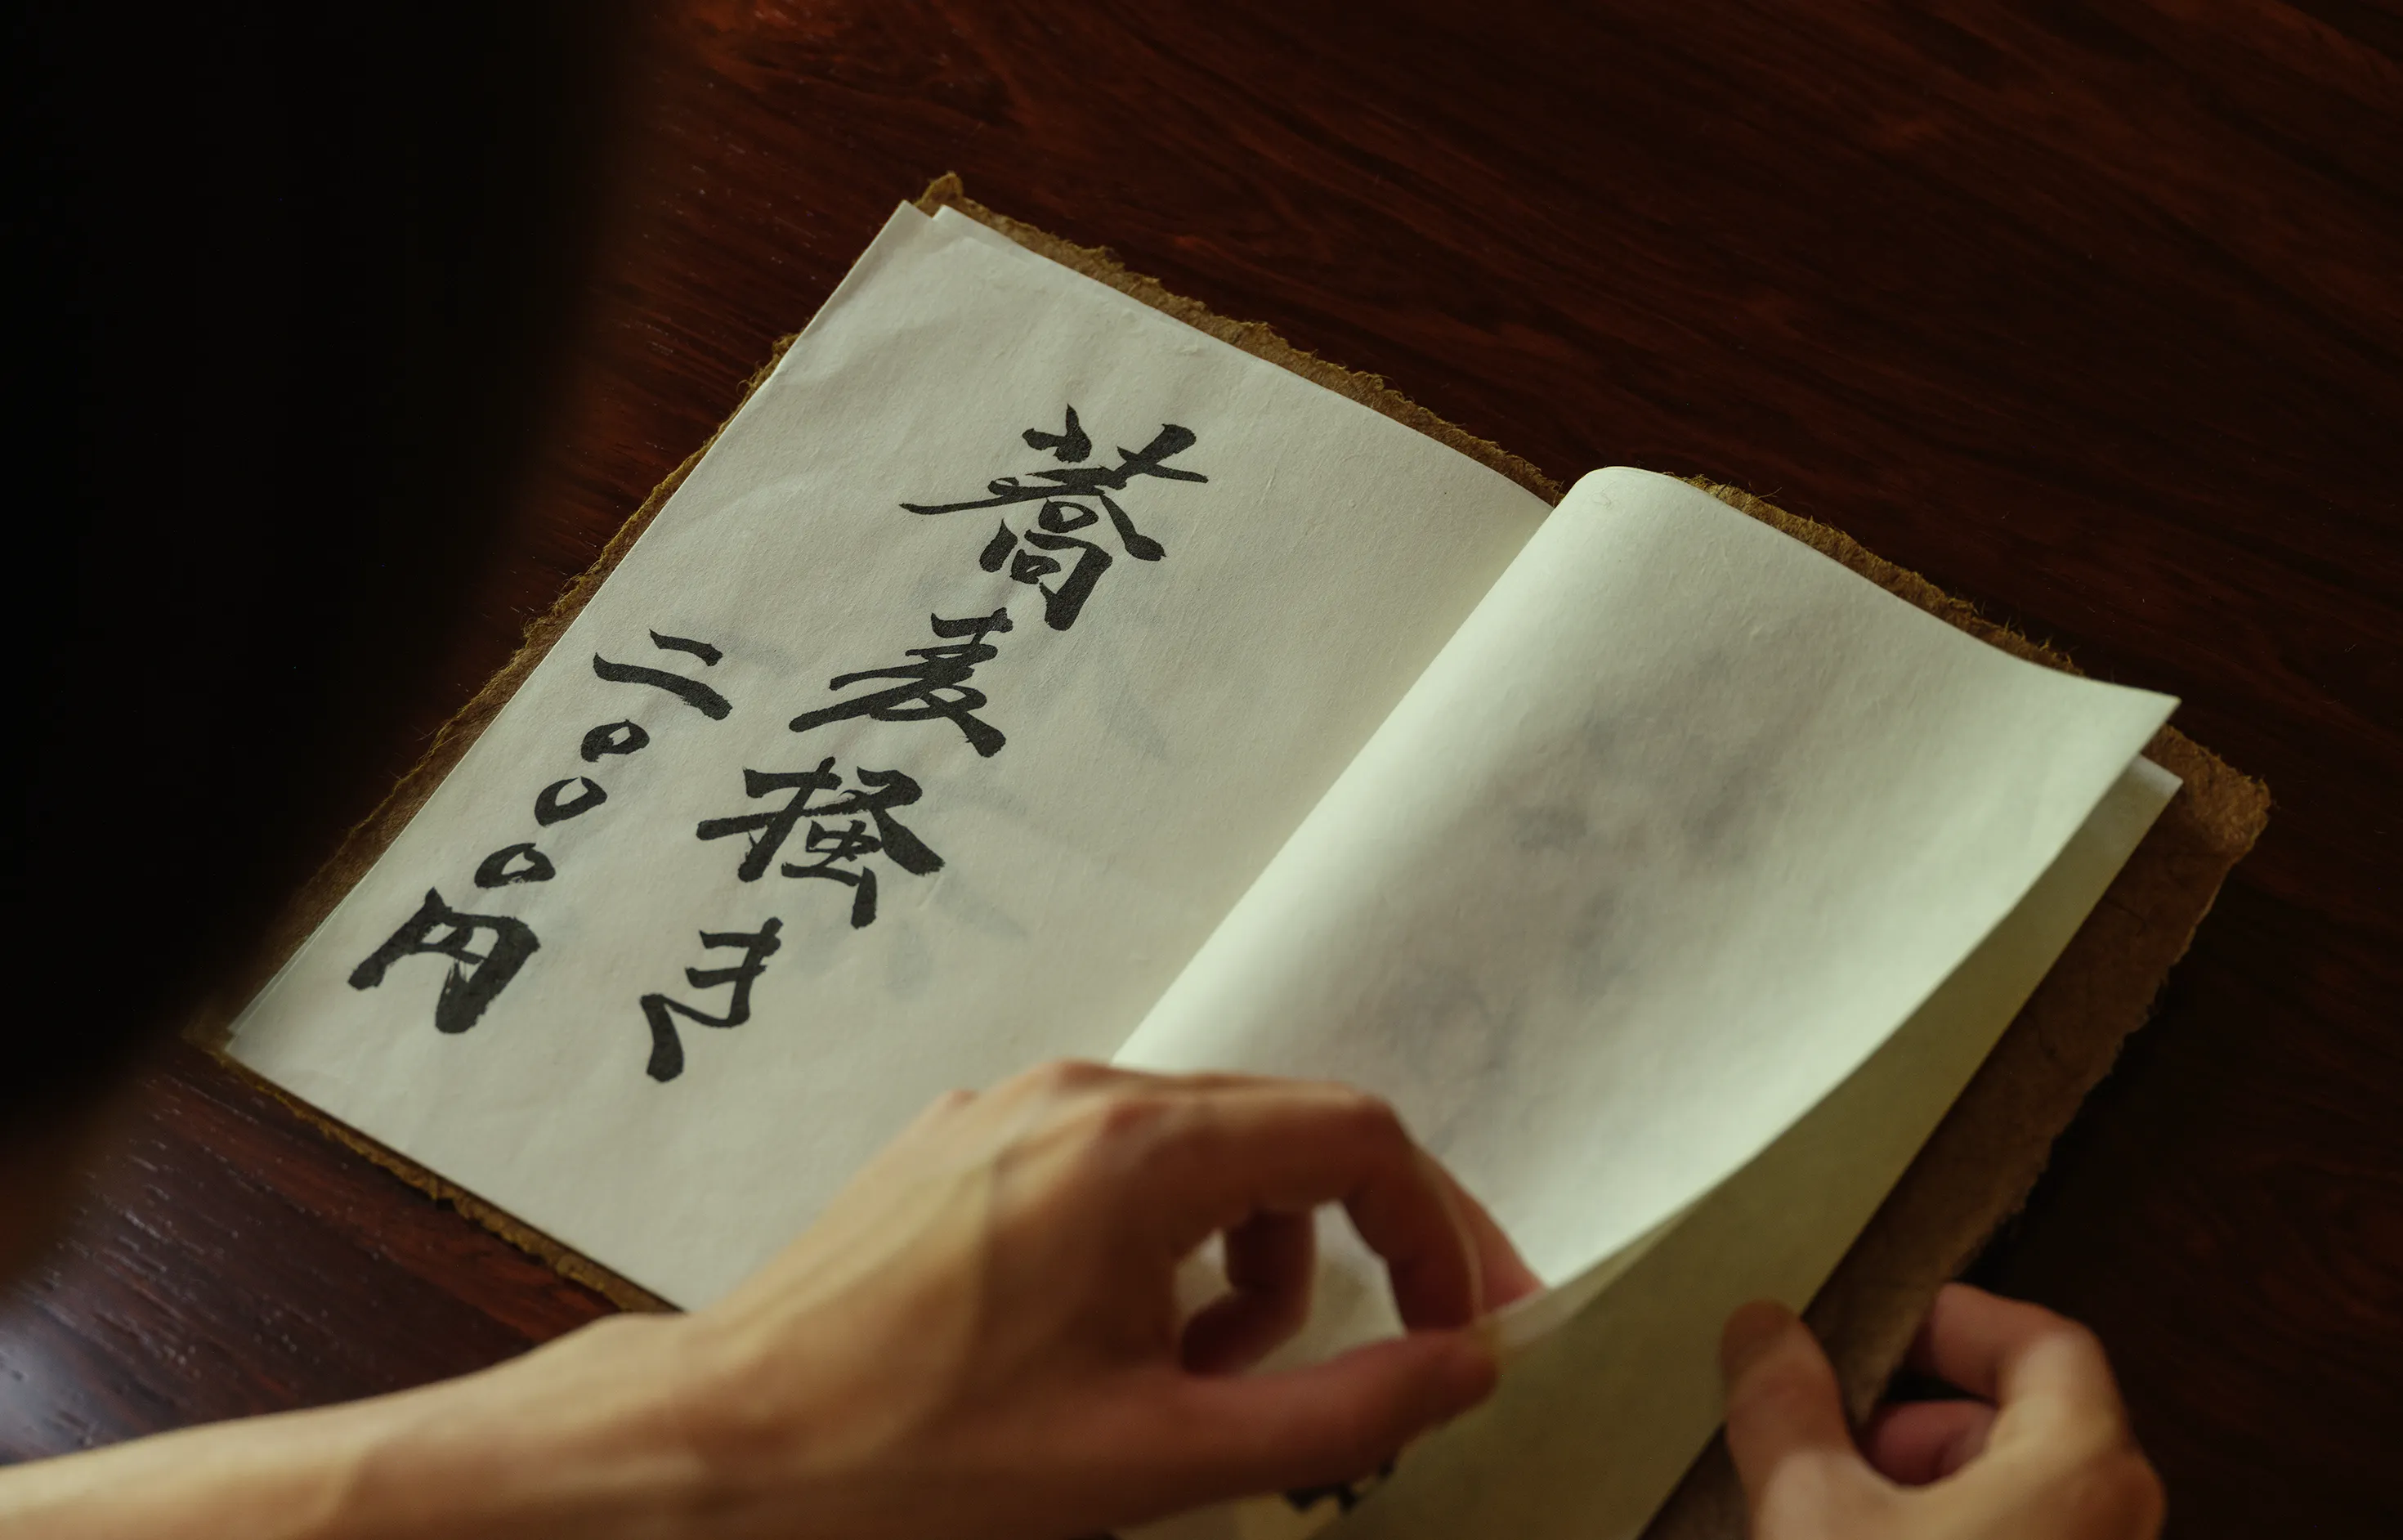 蕎麦掻き
二〇〇〇円